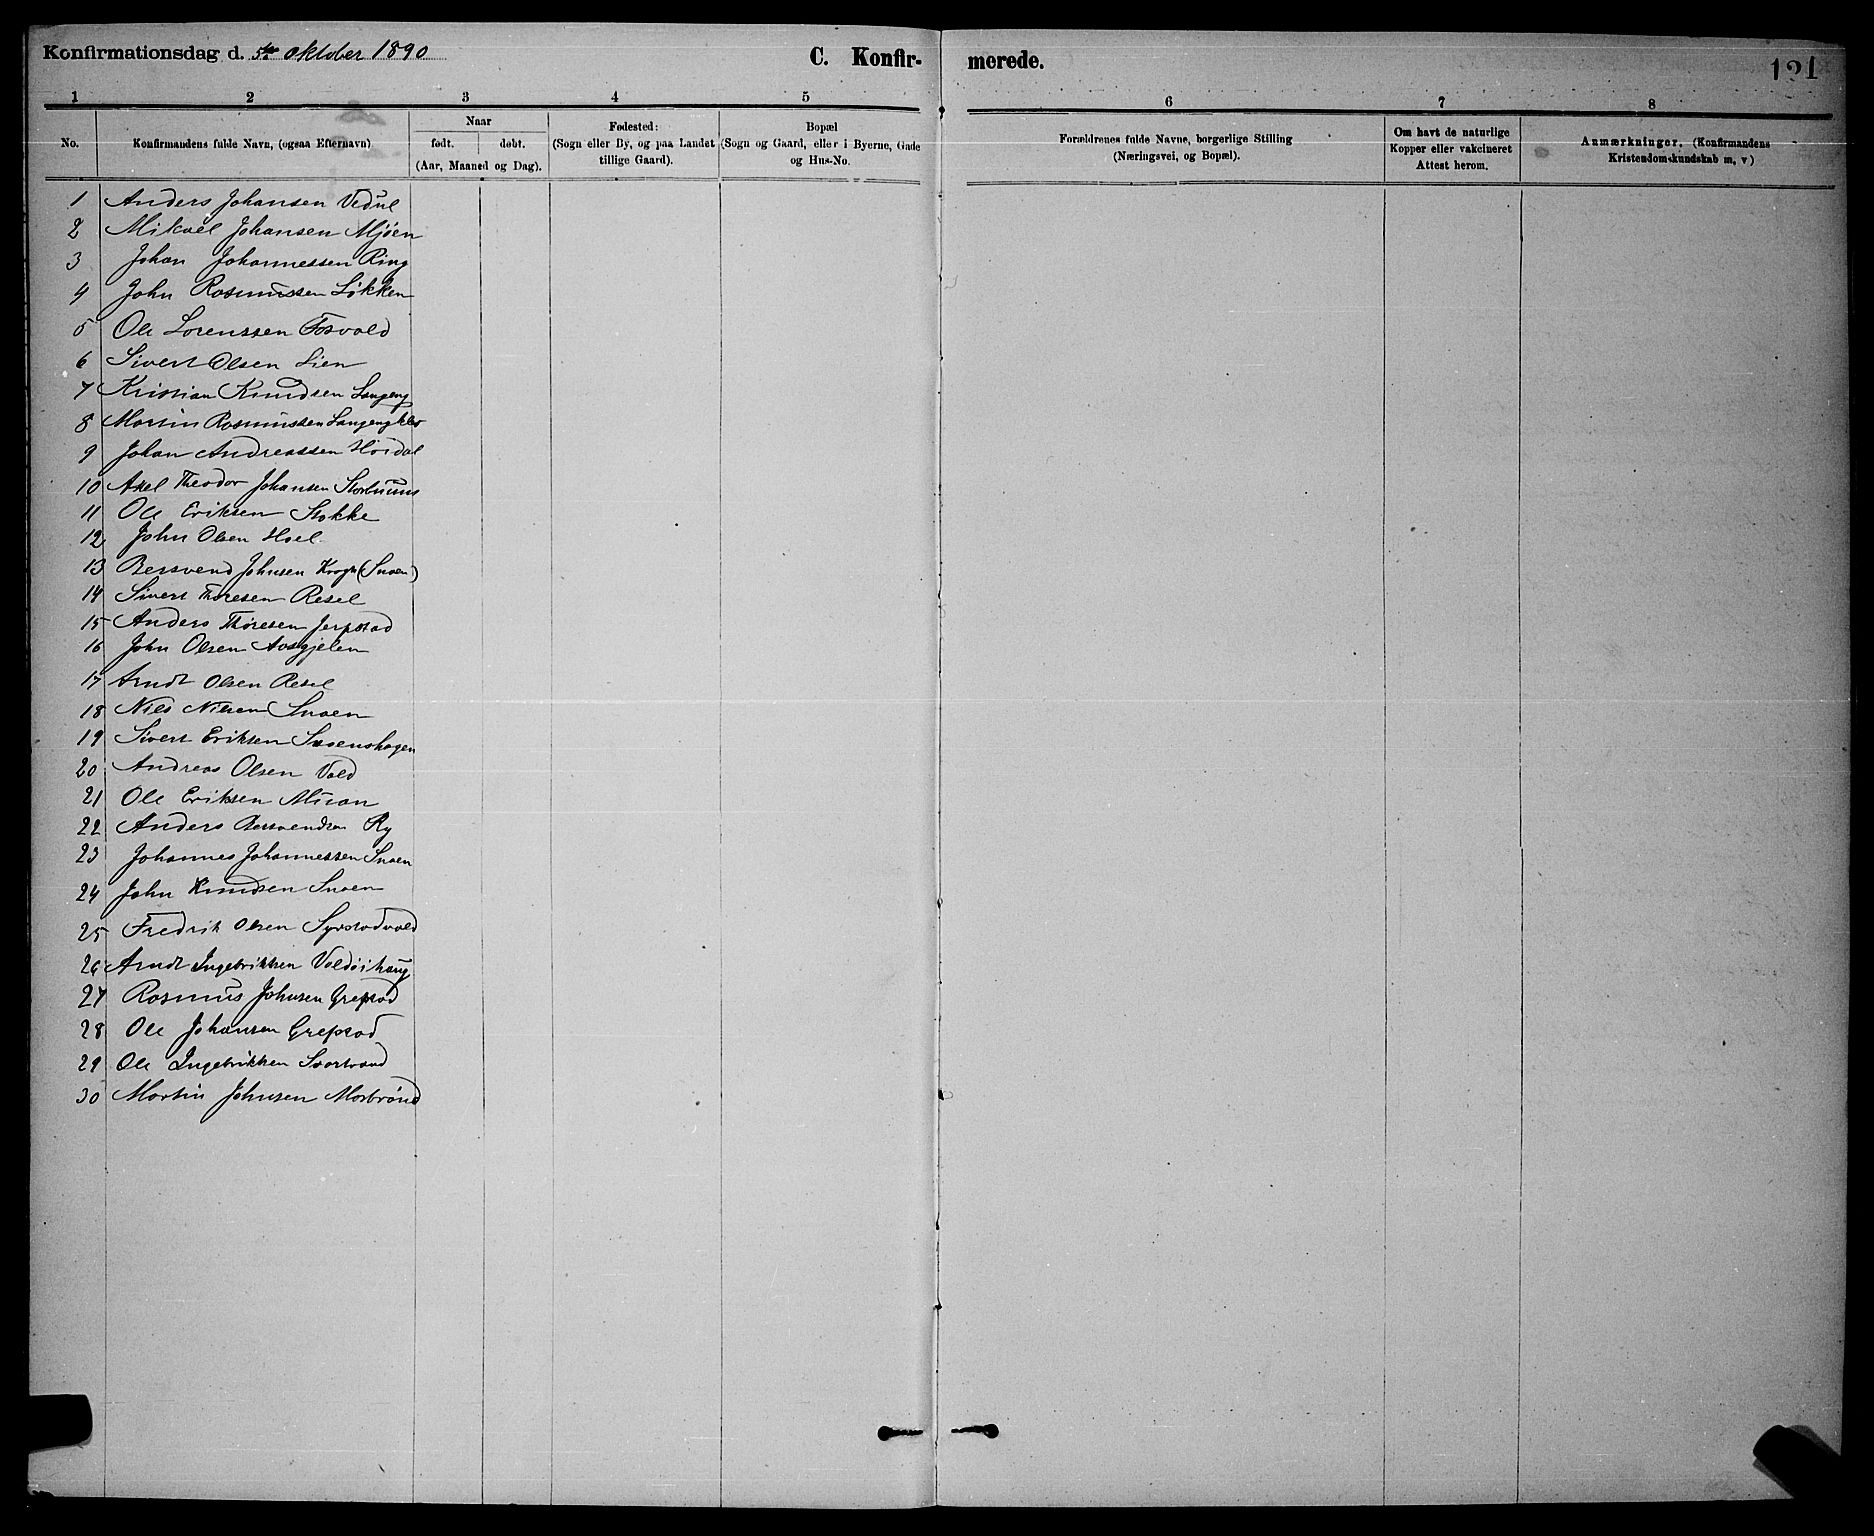 Konfirmationsdag d. 5te oktober 1890
C. Konfir-
merede.
121
1 2 3 4 5 6 7 8
No.
Konfirmandens fulde Navn, (ogsaa Efternavn)
Naar
født. døbt.
(Aar, Maaned og Dag).
Fødested:
(Sogn eller By, og paa Landet
tillige Gaard).
Bopæl
(Sogn og Gaard, eller i Byerne, Gade
og Hus-No.
Forældrenes fulde Navne, borgerlige Stilling
(Næringsvei, og Bopæl).
Om havt de naturlige
Kopper eller vakcineret
Attest herom.
Anmærkninger. (Konfirmandens
Kristendomskundskab m, v)
1 Anders Johansen Vedul
2 Mikael Johansen Mjøen
3 Johan Johannessen Ring
4 John Rasmussen Løkken
5 Ole Lorenssen Fosvold
6 Sivert Olsen Lien
7 Kristian Knudsen Langeng
8 Martin Rasmussen
9 Johan Andreassen Hoisdal
10 Axel Theodor Johansen
11 Ole Eriksen Stokke
12 John Olsen Hoel
13 Bersvend Johnsen Krogh (Snoen)
14 Sivert Thoresen Resel
15 Anders Thøresen Jerpstad
16 John Olsen Aasgjelen
17 Arndt Olsen Resel
18 Nils Nilsen Snoen
19 Sivert Eriksen
20 Andreas Olsen Vold
21 Ole Eriksen Muan
22 Anders Bersvendsen Ry
23 Johannes Johannessen Snoen
24 John Knudsen Snoen
25 Fredrik Olsen Syrstadvold
26 Arndt Ingebriktsen
27 Rasmus Johnsen Grefstad
28 Ole Johansen Grefstad
29 Ole Ingebriktsen Svartvand
30 Martin Johnsen